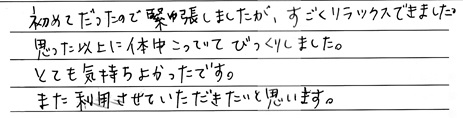 初めてだったので緊張しましたが、すごくリラックスできました。
思った以上に体中こっていてびっくりしました。
とても気持ちよかったです。
また利用させていただきたいと思います。